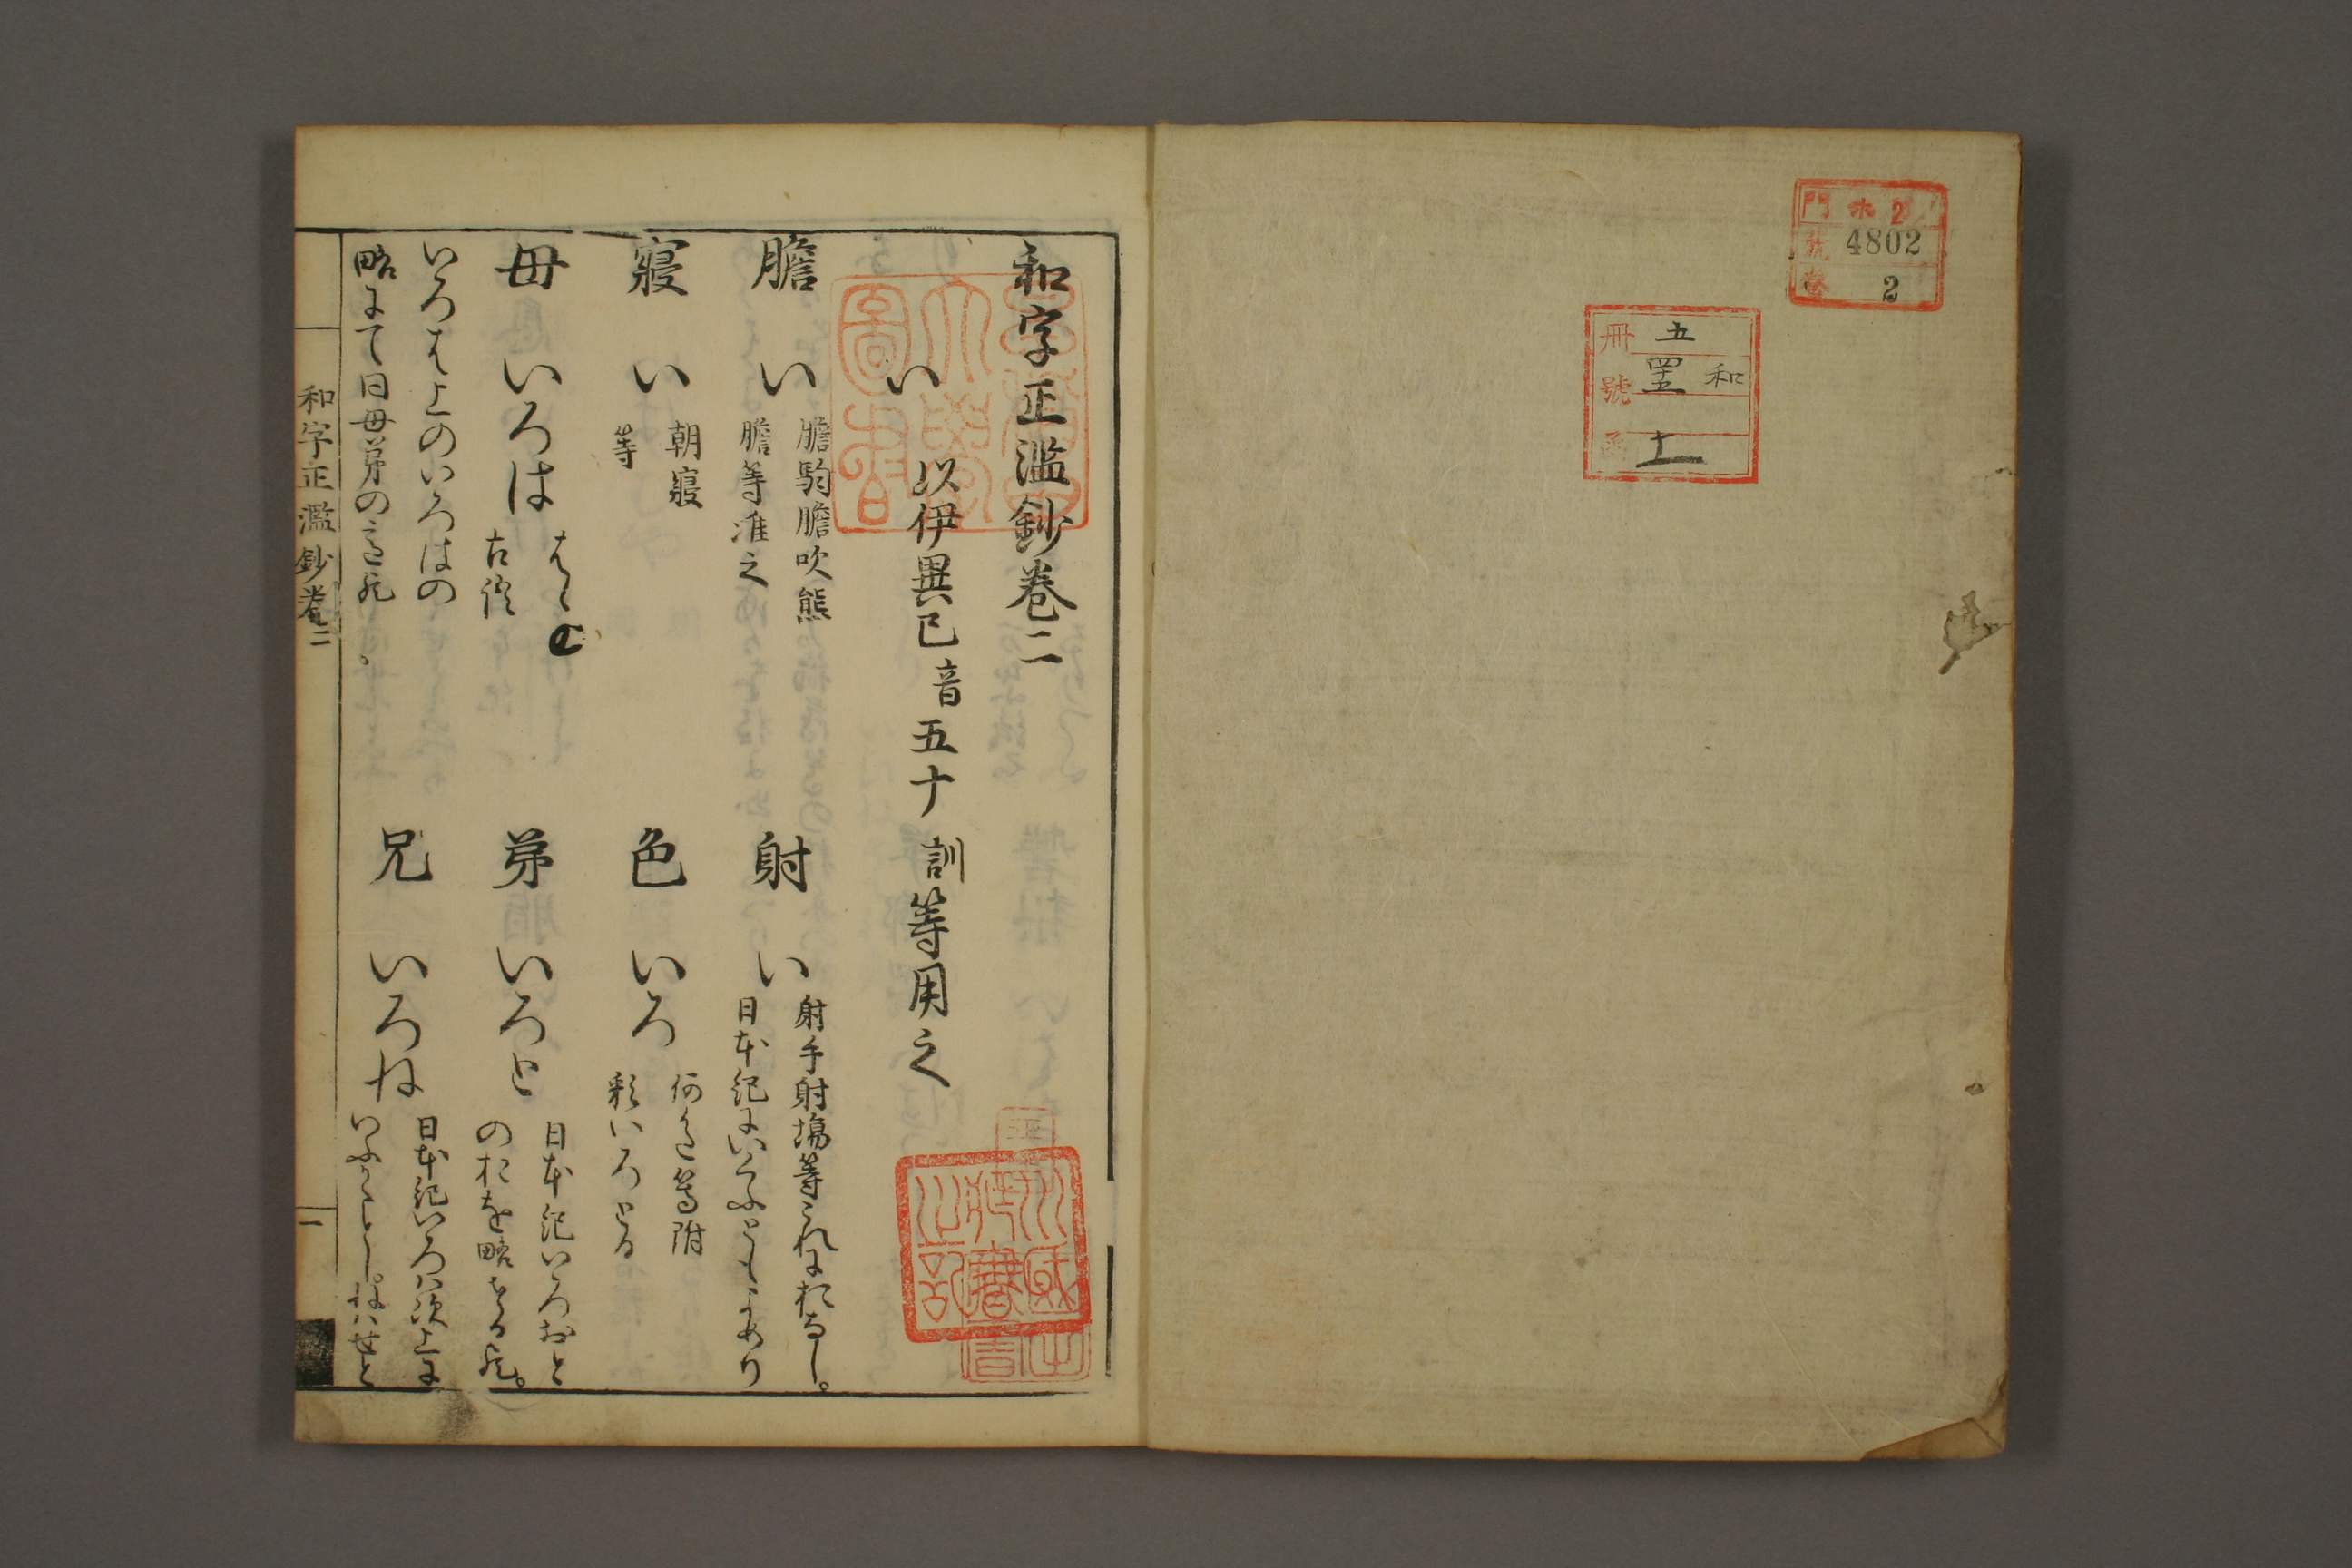 門 ホ2
號 4802
卷 2
和
五
冊
號
函
和字正濫鈔卷二
い 以伊異已音五十訓等用之
膽 い 膽駒膽吹熊
膽等准之
射 い 射手射場等これにおなし。
日本紀にいくふともよめり
寢 い 朝寢
等
色 いろ 何色等附
彩いろとる
母 いろは はゝ也
古語
弟 いろと 日本紀いろおと
のおを略せる歟。
いろは上のいろはの
略にて同母弟の意歟
兄 いろね 日本紀いろハ次上に
いふかことし。ねハせと
和字正濫鈔卷二
一